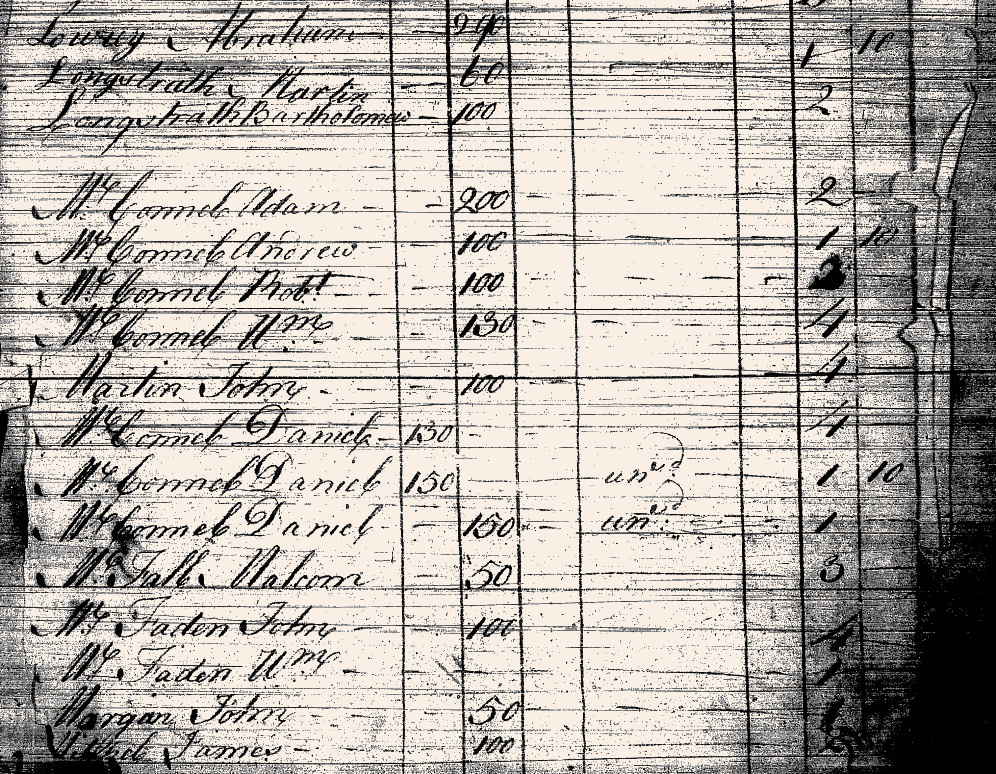 Lowry Abraham 200 1 10
Longstrath Martin — 60 1
Longstrath Bartholomew — 100 2
Mc Connel Adam — 200 2
Mc Connel Andrew — 100 1 10
Mc Connel Robt. 100
Mc Connel Wm. — 130 4
Martin John — 100 4
Mc Connel Daniel — 130 4
Mc Connel Daniel 150 und. 1 10
Mc Connel Daniel — 150 und. 1
Mc Fall Malcom — 50 3
Mc Faden John 100 4
Mc Faden Wm. — 1
Morgan John — 50
James — 100